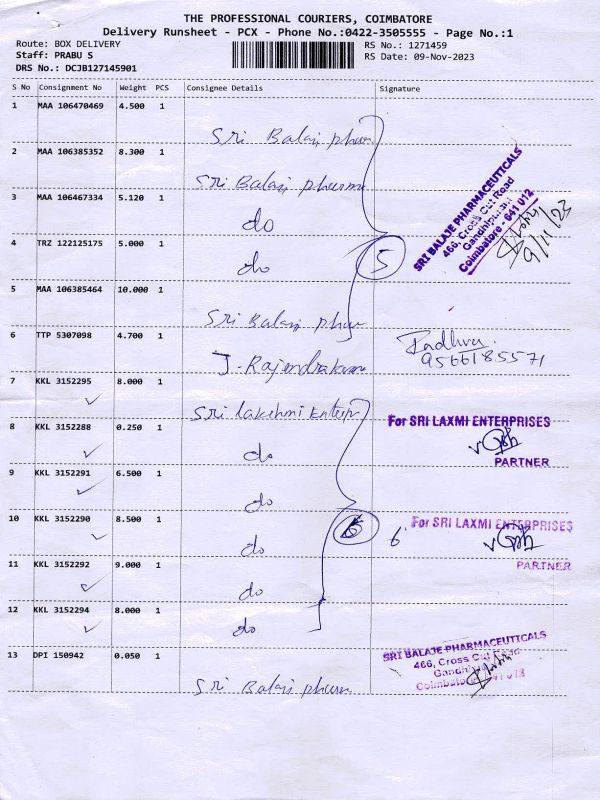 THE PROFESSIONAL COURIERS, COIMBATORE
Delivery Runsheet - PCX - Phone No.:0422-3505555 - Page No.:1
Route: BOX DELIVERY
RS No.: 1271459
Staff: PRABU S
RS Date: 09-Nov-2023
DRS No.: DCJB127145901
S No Consignment No Weight PCS Consignee Details Signature
1 MAA 106470469 4.500 1
Sri Balaji phar
2 MAA 106385352 8.300 1
Sri Balaji pharma
3 MAA 106467334 5.120 1
do
SRI BALAJE PHARMACEUTICALS
466, Cross Cut Road
Gandhipuram
Coimbatore - 641 012
9/11/23
4 TRZ 122125175 5.000 1
do
5
5 MAA 106385464 10.000 1
Sri Balaji phar
6 TTP 5307098 4.700 1
J. Rajendrakumar
9566185571
7 KKL 3152295 8.000 1
Sri lakshmi Enterpr
For SRI LAXMI ENTERPRISES
PARTNER
8 KKL 3152288 0.250 1
do
9 KKL 3152291 6.500 1
do
10 KKL 3152290 8.500 1
do
6
6
For SRI LAXMI ENTERPRISES
PARTNER
11 KKL 3152292 9.000 1
do
12 KKL 3152294 8.000 1
do
13 DPI 150942 0.050 1
Sri Balaji pharm
SRI BALAJE PHARMACEUTICALS
466, Cross Cut Road
Gandhipuram
Coimbatore - 641 012